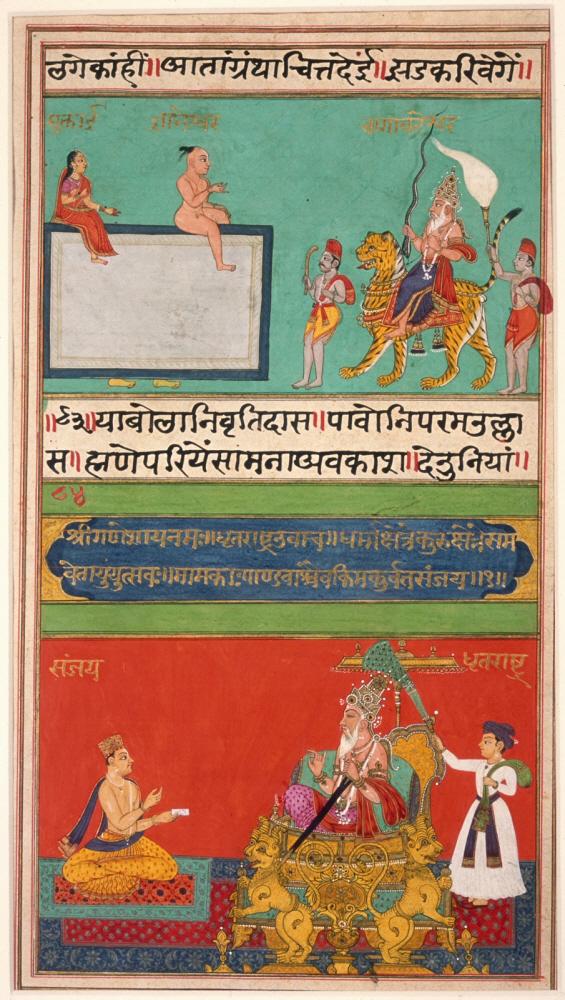 लगेकांहीं॥आतांग्रंथाचित्तदेईं॥झडकरिवेगें॥
मुक्ताई ज्ञानेश्वर चांगावटेश्वर
॥८३॥याबोलानिवृतिदास॥पावोनिपरमउल्हा
स॥ह्मणेपरियेंसामनाअवकाश॥देउनियां॥
८४
श्रीगणेशायनमः॥धृतराष्ट्रउवाच॥धर्मक्षेत्रेकुरुक्षेत्रेसम
वेतायुयुत्सवः॥मामकाःपाण्डवाश्चैवकिमकुर्वतसंजय॥१॥
संजय धृतराष्ट्र